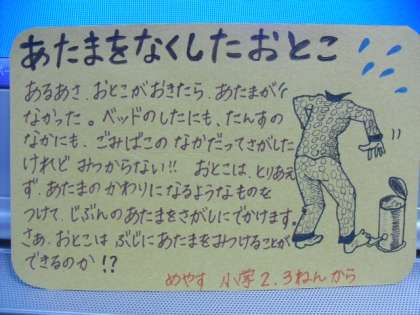 あたまをなくしたおとこ
あるあさ、おとこがおきたら、あたまが
なかった。ベッドのしたにも、たんすの
なかにも、ごみばこのなかだってさがした
けれどみつからない!! おとこは、とりあえ
ず、あたまのかわりになるようなものを
つけて、じぶんのあたまをさがしにでかけます。
さあ、おとこは ぶじにあたまをみつけることが
できるのか!?
めやす 小学2.3ねんから